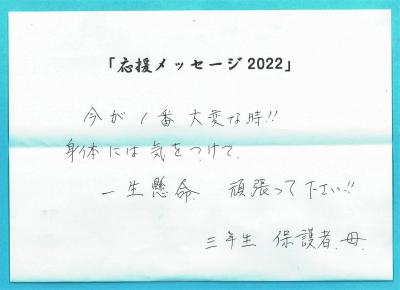 「応援メッセージ2022」
今が1番大変な時!!
身体には気をつけて、
一生懸命、頑張って下さい!!
三年生 保護者、母、